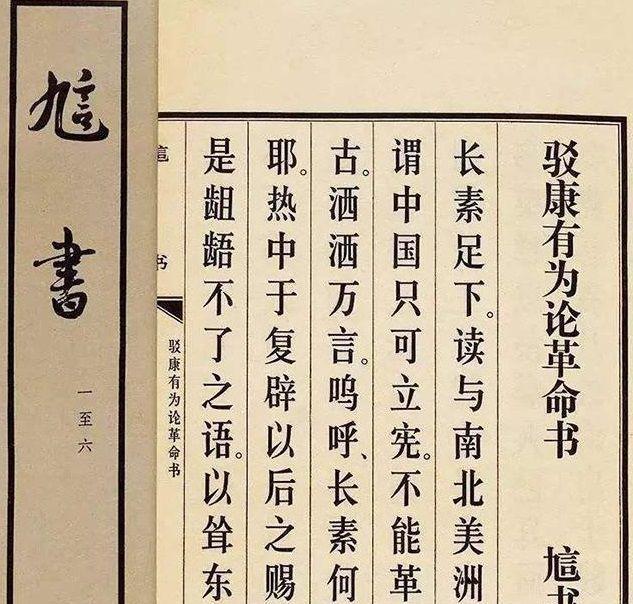 驳康有为论革命书
訄书
长素足下。读与南北美洲
谓中国只可立宪。不能革
古。洒洒万言。呜呼、长素何
耶。热中于复辟以后之赐
是龃龉不了之语。以耸东
驳康有为论革命书
訄書
一至六